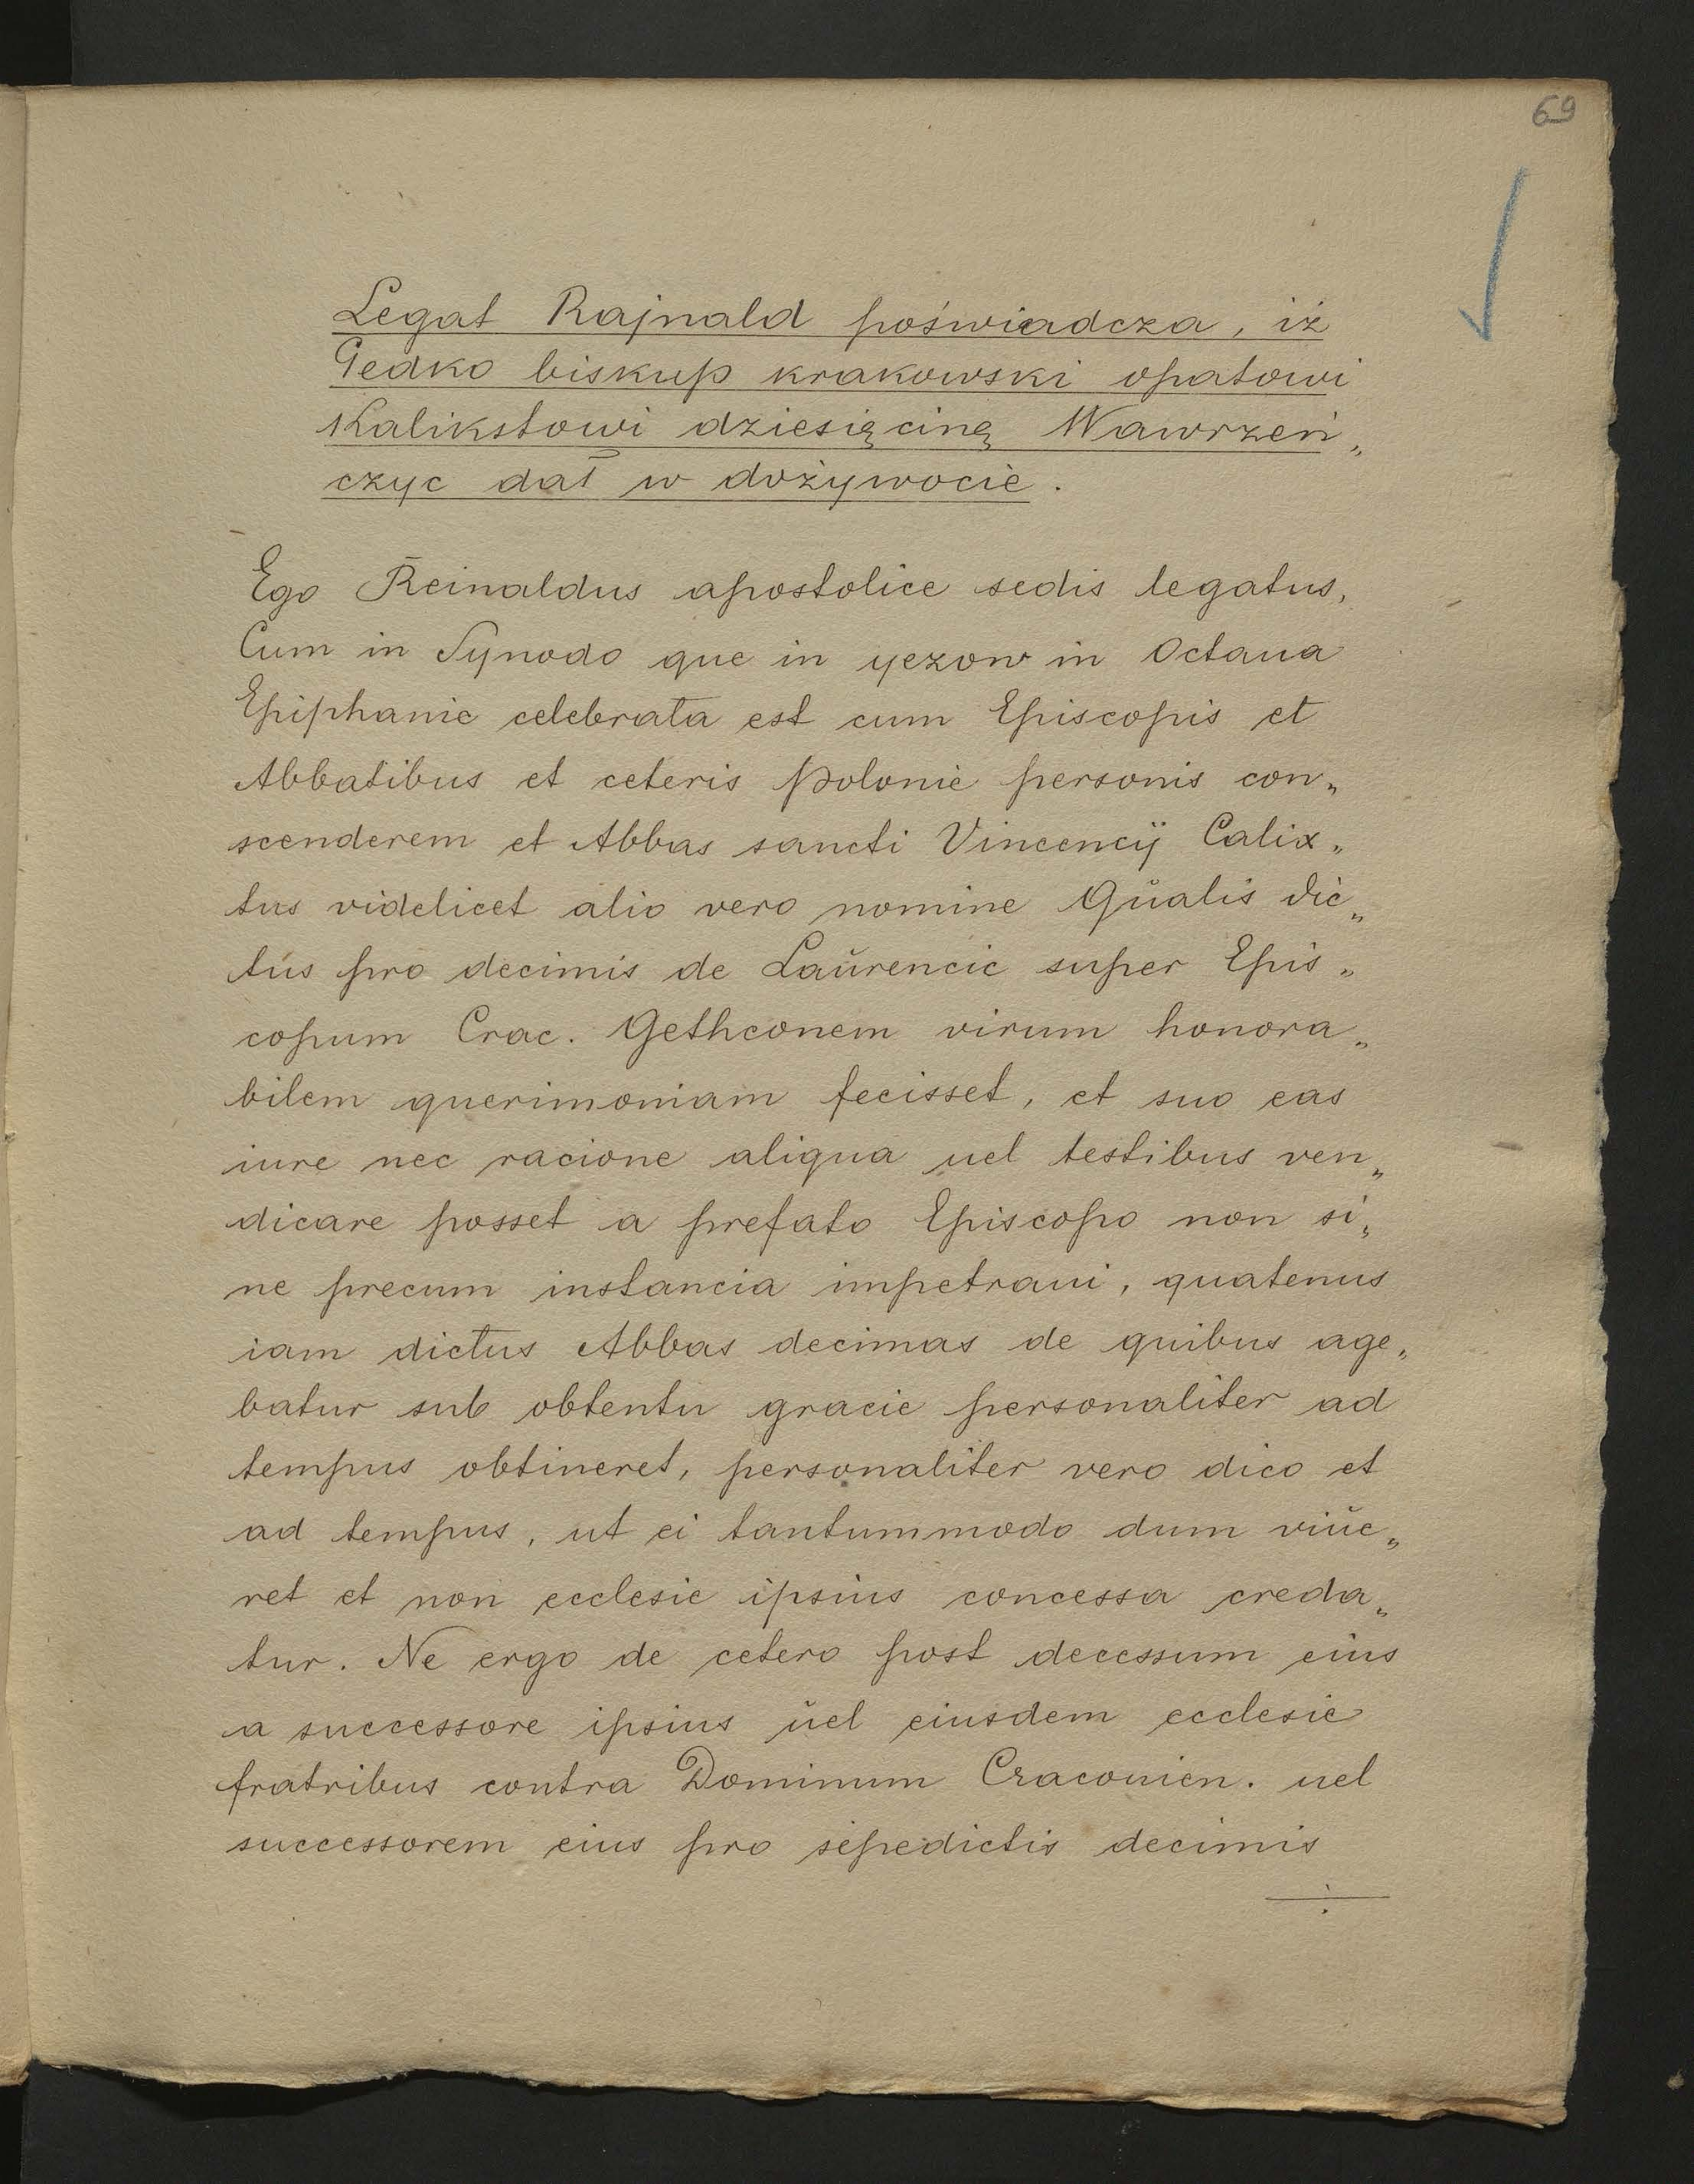 69
Legat Rajnald poświadcza, iż
Gedko biskup krakowski opatowi
Kalikstowi dziesięcinę Wawrzeń„
czyc dał w dożywocie.
Ego Reinaldus apostolice sedis legatus,
Cum in Synodo que in yezow in Octaua
Epiphanie celebrata est cum Episcopis et
Abbatibus et ceteris Polonie personis con„
scenderem et Abbas sancti Vincencÿ Calix„
tus videlicet alio vero nomine Gŭalis dic„
tus pro decimis de Laŭrencic super Epis„
copum Crac. Gethconem virum honora„
bilem querimoniam fecisset, et suo eas
iure nec racione aliqua uel testibus ven„
dicare posset a prefato Episcopo non si„
ne precum instancia impetraui, quatenus
iam dictus Abbas decimas de quibus age„
batur sub obtentu gracie personaliter ad
tempus obtineret, personaliter vero dico et
ad tempus, ut ei tantummodo dum viŭe„
ret et non ecclesie ipsius concessa creda„
tur. Ne ergo de cetero post decessum eius
a successore ipsius ŭel eiusdem ecclesie
fratribus contra Dominum Cracouien. uel
successorem eius pro sepedictis decimis